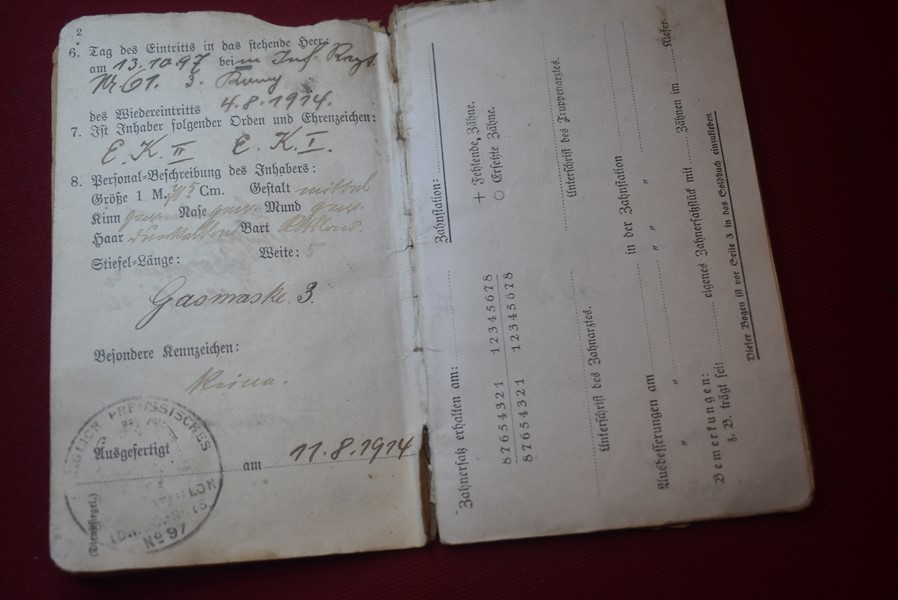 2
6. Tag des Eintritts in das stehende Heer:
am 13.10.97 beim Inf. Regt.
Nr 61. 3. Komp
des Wiedereintritts 4.8.1914.
7. Ist Inhaber folgender Orden und Ehrenzeichen:
E. K. II E. K. I.
8. Personal-Beschreibung des Inhabers:
Größe 1 M. Cm. Gestalt mittel
Kinn gew. Nase gew. Mund gew.
Haar dunkelblond Bart
Stiefel-Länge: Weite:
Gasmaske 3.
Besondere Kennzeichen:
Keine.
PREUSSISCHES
No 97
Ausgefertigt
am 11.8.1914
(Dienstsiegel.)
Zahnstation:
+ Fehlende Zähne.
○ Ersetzte Zähne.
Zahnersatz erhalten am:
87654321 12345678
87654321 12345678
Unterschrift des Zahnarztes. Unterschrift des Truppenarztes.
Ausbesserungen am in der Zahnstation
" " "
" " "
Bemerkungen:
z. B. trägt seit eigenes Zahnersatzstück mit Zähnen im Kiefer
Dieser Bogen ist vor Seite 3 in das Soldbuch einzukleben.